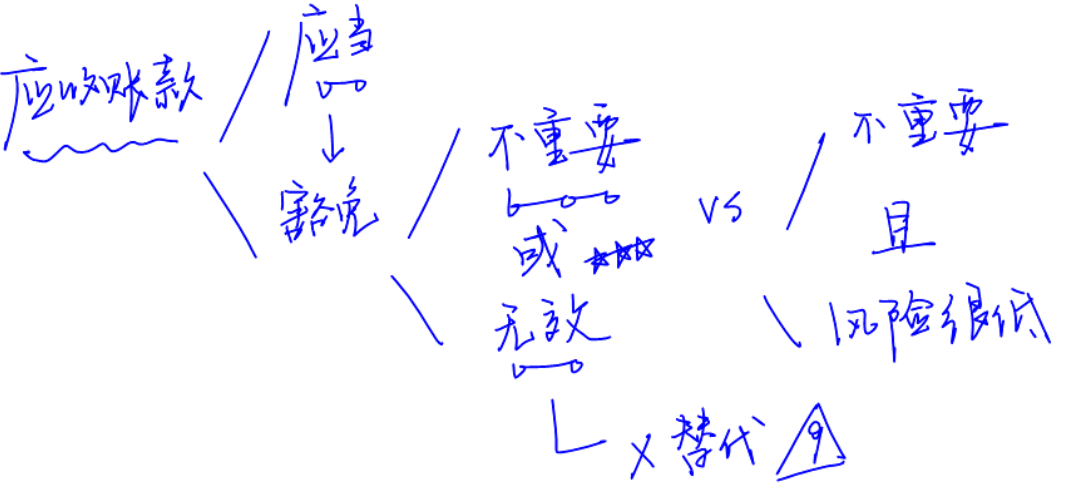 应收账款
应当
豁免
不重要
或
无效
X替代 9
vs
不重要
且
风险很低